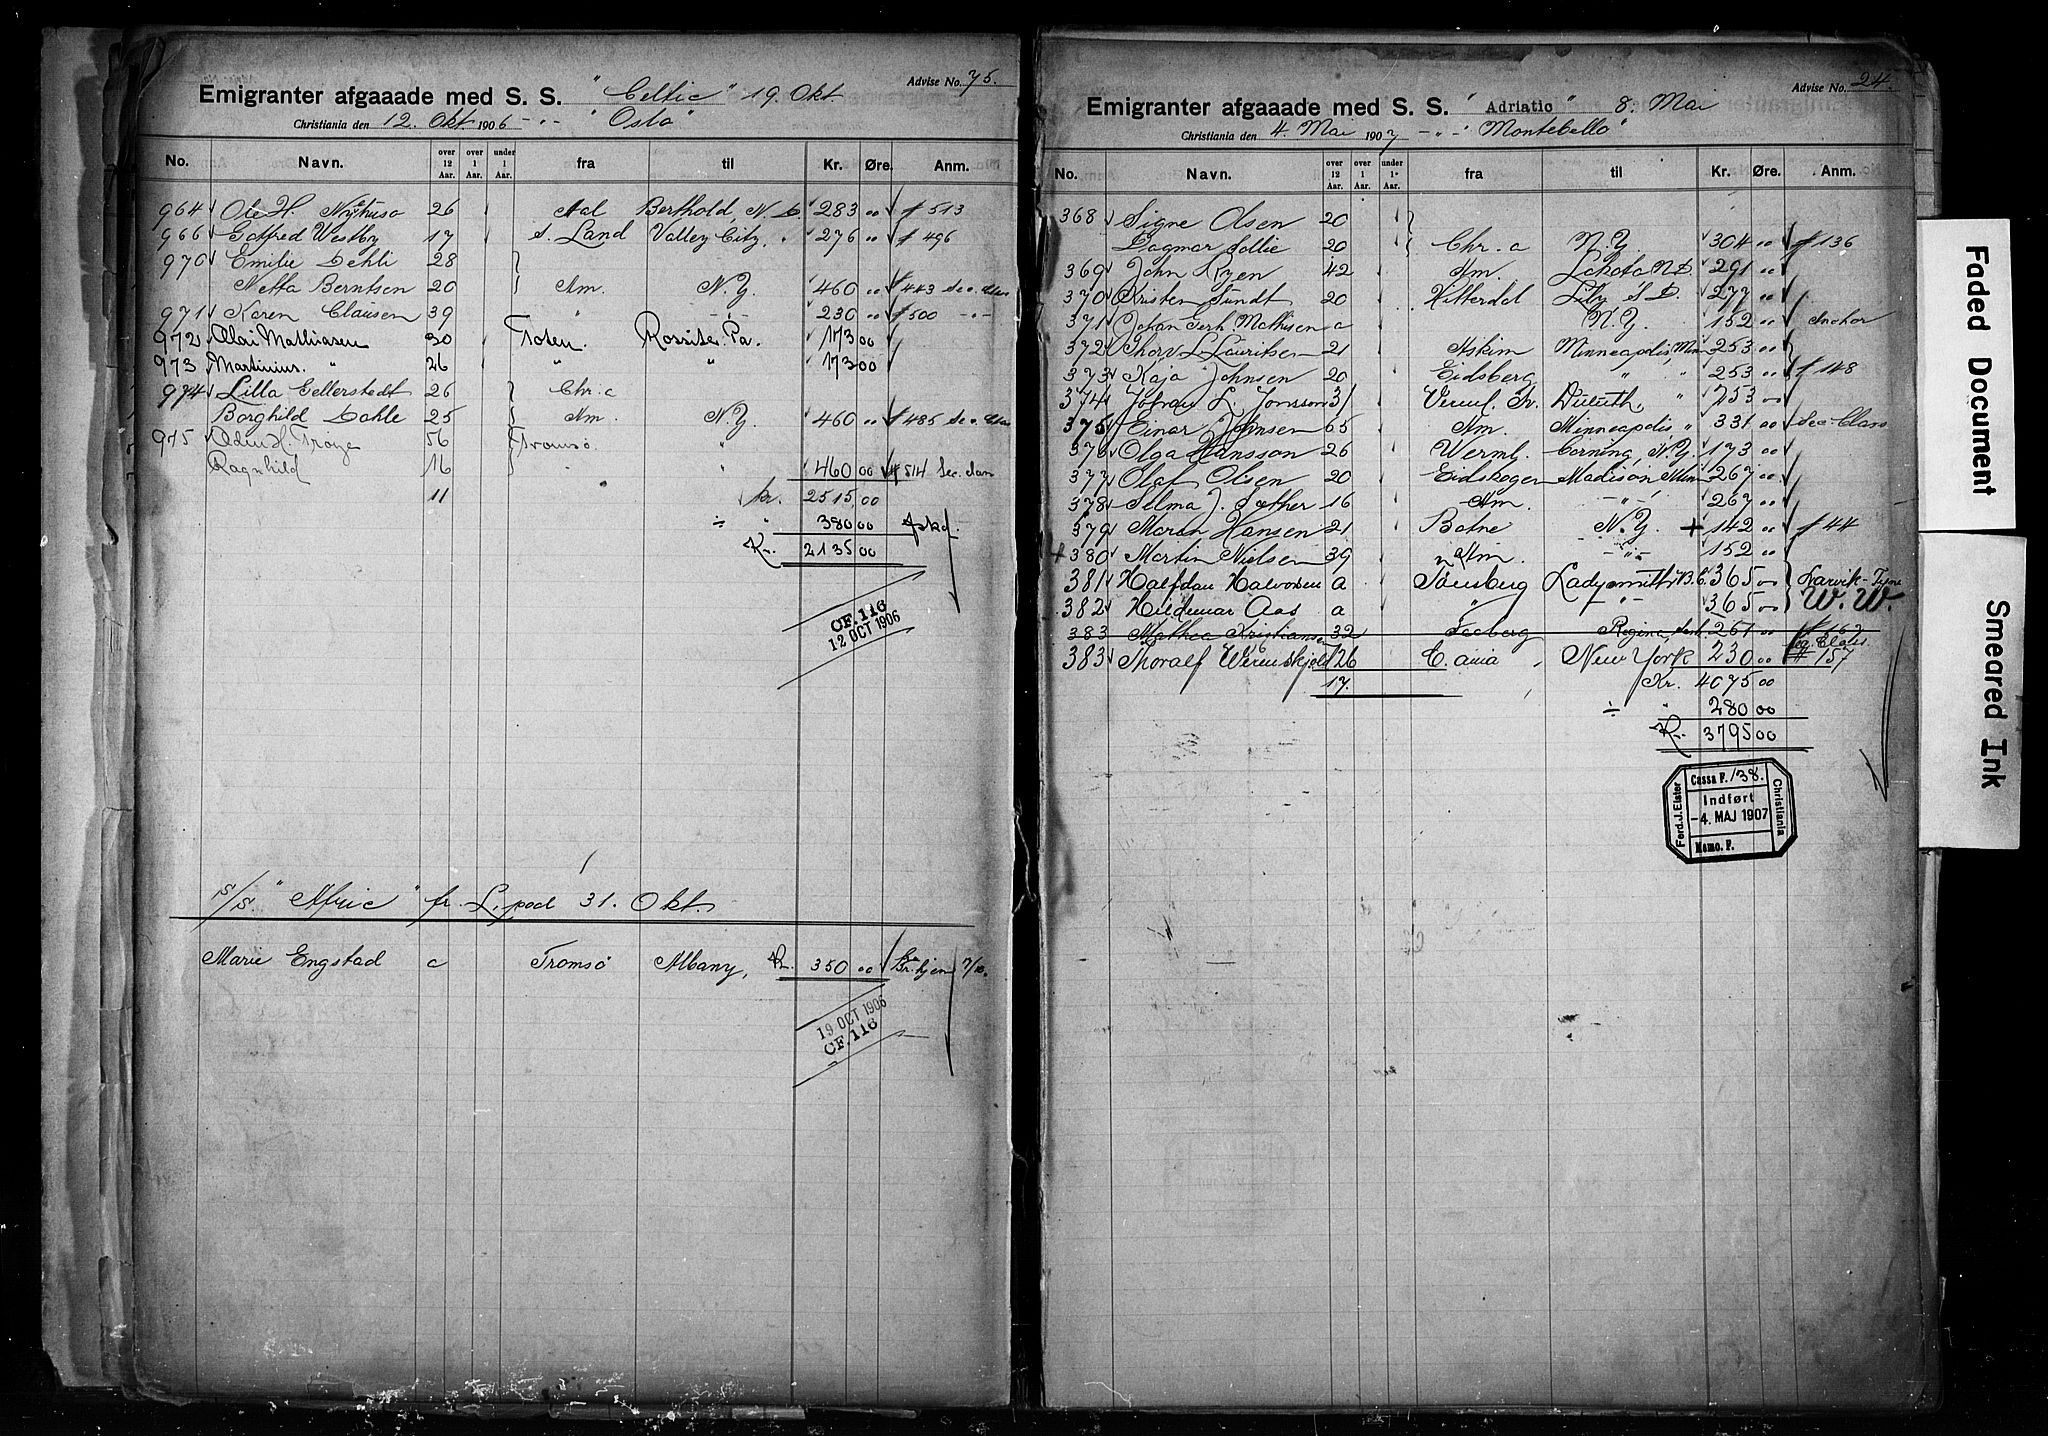 Advise No. 75.
Emigranter afgaaade med S. S. "Celtic" 19. Okt.
Christiania den 12. Okt. 1906 -"- "Oslo"
No. Navn. over 12 Aar. over 1 Aar. under 1 Aar. fra til Kr. Øre. Anm.
964 Ole H. 26 Aal Berthold, N. D. 283 00 # 513
966 Gotfred Westby 17 S. Land Valley City, " 276 00 # 496
970 Emilie Dehli 28
Netta Berntsen 20 Hm. N.Y. 460 00 # 443 Sec. Class
971 Karen Clausen 39 " -"- 230 00 # 500 -"-
972 Olai Mathiasen 30 Toten. Rossiter Pa. 173 00
973 Martinius " 26 " " 173 00
974 Lilla Gellerstedt 26 Chr. a
Borghild Dahle 25 Hm. N.Y. 460 00 # 485 Sec. Class
975 Odin H. Trøye 56 Tromsø
Ragnhild 16 " " 460 00 # 514 Sec. Clas
11 kr. 2515,00
÷ " 380 00
Kr. 2135 00
CF. 116
12 OCT 1906
S/S. "Afric" fr. L.pool 31. Okt.
Marie Engstad c Tromsø Albany, Kr. 350 00 7/10.
19 OCT 1906
CF. 116
Advise No. 24.
Emigranter afgaaade med S. S. "Adriatic" 8. Mai
Christiania den 4. Mai 1907 -"- "Montebello"
No. Navn. over 12 Aar. over 1 Aar. under 1 Aar. fra til Kr. Øre. Anm.
368 Signe Olsen 20
Dagmar Sollie 20 Chr. a N.Y. 304 00 # 136
369 John Ryen 42 Hm. Lakota N.D. 291 00
370 Kristen Sundt 20 Hitterdal Lily S.D. 277 00
371 Johan Gerh. Mathisen a N.Y. 152 00 Anchor
372 Thorv. L. Lauritsen 21 Askim Minneapolis, Minn 253 00
373 Kaja Johnsen 20 Eidsberg " " 253 00 # 148
374 Johan L. Jonsson 31 Verml. Sv. Duluth, " 253 00
375 Einar Johnsen 65 Hm. Minneapolis " 331 00 Sec-Class
376 Olga Hansson 26 Werml. Corning, N.Y. 173 00
377 Olaf Olsen 20 Eidskogen Madison Minn 267 00
378 Selma J. Sæther 16 Hm. -"- 267 00
379 Maran Hansen 21 Botne N.Y. + 142 00 # 44
+ 380 Martin Nielsen 39 Hm. -"- 152 00
381 Halfdan Halvorsen a Tønsberg Ladysmith B.C. 365 00 Larvik-Tyne
382 Hildemar Aas a " -"- 365 00 W. W.
383 Mathea Kristiansen 32 Regina, 261 00 # 162
383 Thoralf Werenskjold 26 C.ania New York 230 00 # 157
17. Kr. 4075 00
÷ " 280 00
Kr. 3795 00
Cassa F. 138.
Indført
-4. MAJ 1907
Memo. F.
Ferd. J. Elster
Christiania
Faded Document
Smeared Ink